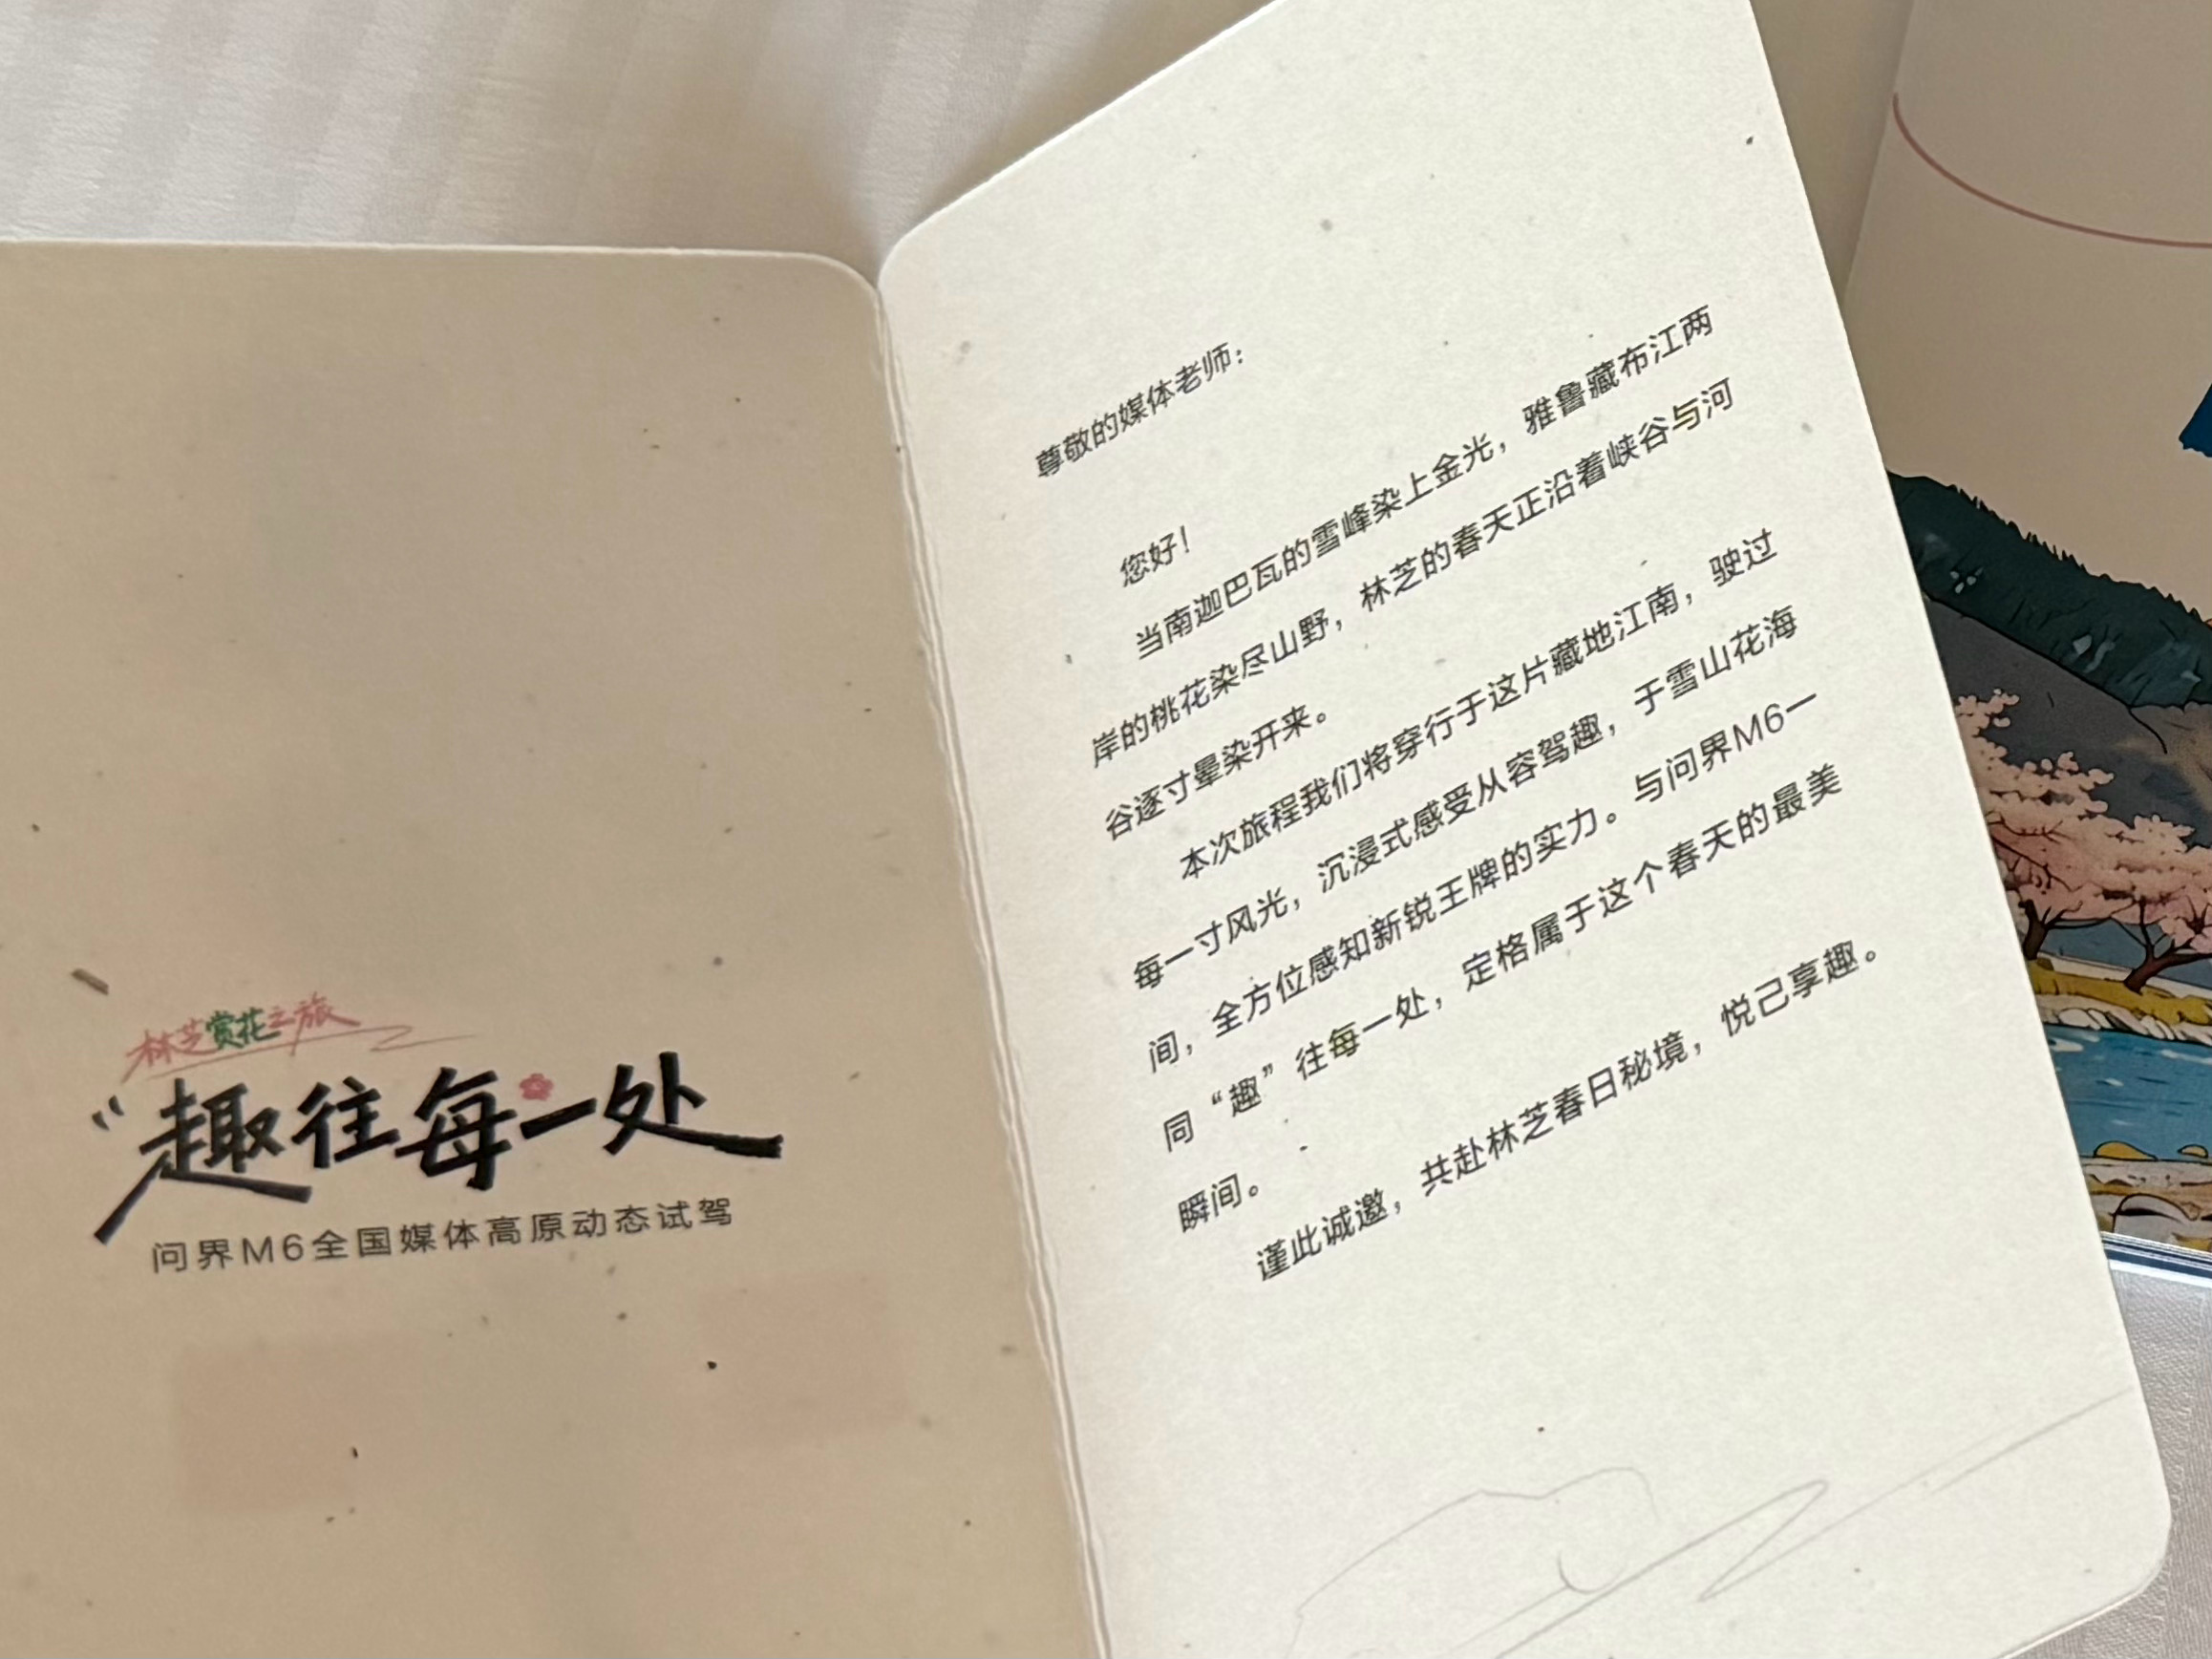 林芝赏花之旅
“趣往每一处
问界M6全国媒体高原动态试驾
尊敬的媒体老师：
您好！
当南迦巴瓦的雪峰染上金光，雅鲁藏布江两
岸的桃花染尽山野，林芝的春天正沿着峡谷与河
谷逐寸晕染开来。
本次旅程我们将穿行于这片藏地江南，驶过
每一寸风光，沉浸式感受从容驾趣，于雪山花海
间，全方位感知新锐王牌的实力。与问界M6一
同“趣”往每一处，定格属于这个春天的最美
瞬间。
谨此诚邀，共赴林芝春日秘境，悦己享趣。